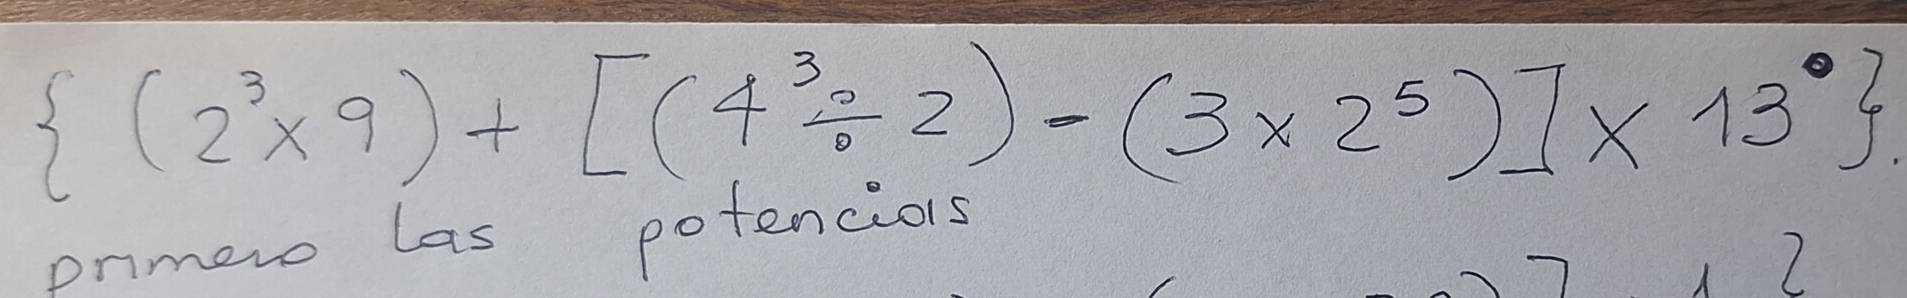 { (2³ × 9) + [ (4³ ÷ 2) - (3 × 2⁵) ] × 13⁰ }.
primero las potencias